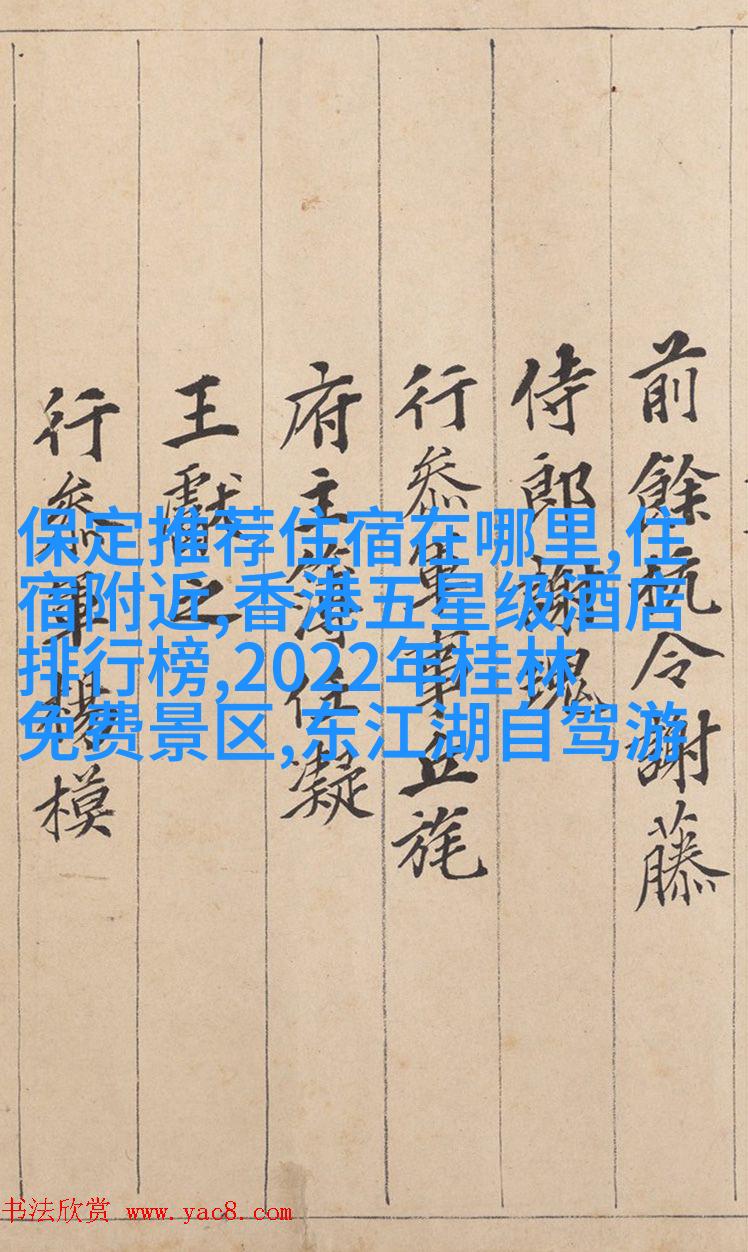 前餘杭令謝藤
侍郎謝瑰
行叅軍事丘旄
府主簿任凝
王獻之
行叅軍楊模
保定推荐住宿在哪里,住
宿附近,香港五星级酒店
排行榜,2022年桂林
免费景区,东江湖自驾游
书法欣赏 www.yac8.com